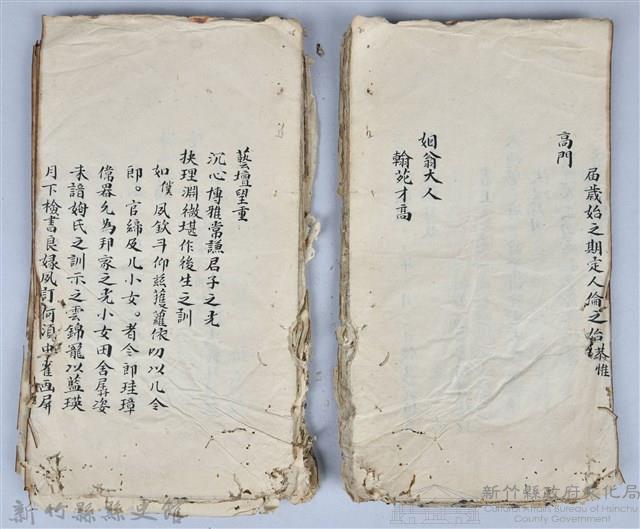 屇歲始之期定人倫之始恭惟
高門
姻翁大人
翰苑才高
藝壇望重
沉心博雅常謙君子之光
抉理淵微堪作後生之訓
如僕夙欽斗仰茲獲蘿依叨以几令
郎。官締及几小女。者令郎珪璋
儻器允為邦家之光小女田舍孱姿
未諳姆氏之訓示之雲錦寵以藍瑛
月下檢書良緣夙訂何湏中雀画屏
新竹縣縣史館
新竹縣政府文化局
Cultural Affairs Bureau of Hsinchu
County Government